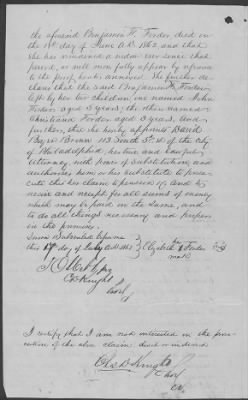 the aforesaid Benjamin F. Forder died on
the 1st day of June A.D. 1862 and that
she has remained a widow ever since that
period, as will more fully appear by reference
to the proof hereto annexed. She further de-
clares that the said Benjamin F. Forder
left by her two children; one named John
Forder, aged 5 years; the other named
Christiana Forder aged 3 years, and
further, she hereby appoints David
Bayer Brown 113 South 5th St of the city
of Philadelphia, her true and lawful
attorney, with power of substitution, and
authorizes him or his substitute to prose-
cute this her claim of pension &c. and to
receive and receipt for all sums of money
which may be paid in the same, and
to do all things necessary and proper
in the premises.
Sworn & subscribed before me
this day of July A.D. 1862 Elizabeth her Forder
mark
C. D. Knight
I certify that I am not interested in the prose-
cution of the above claim direct or indirect
Chs D Knight